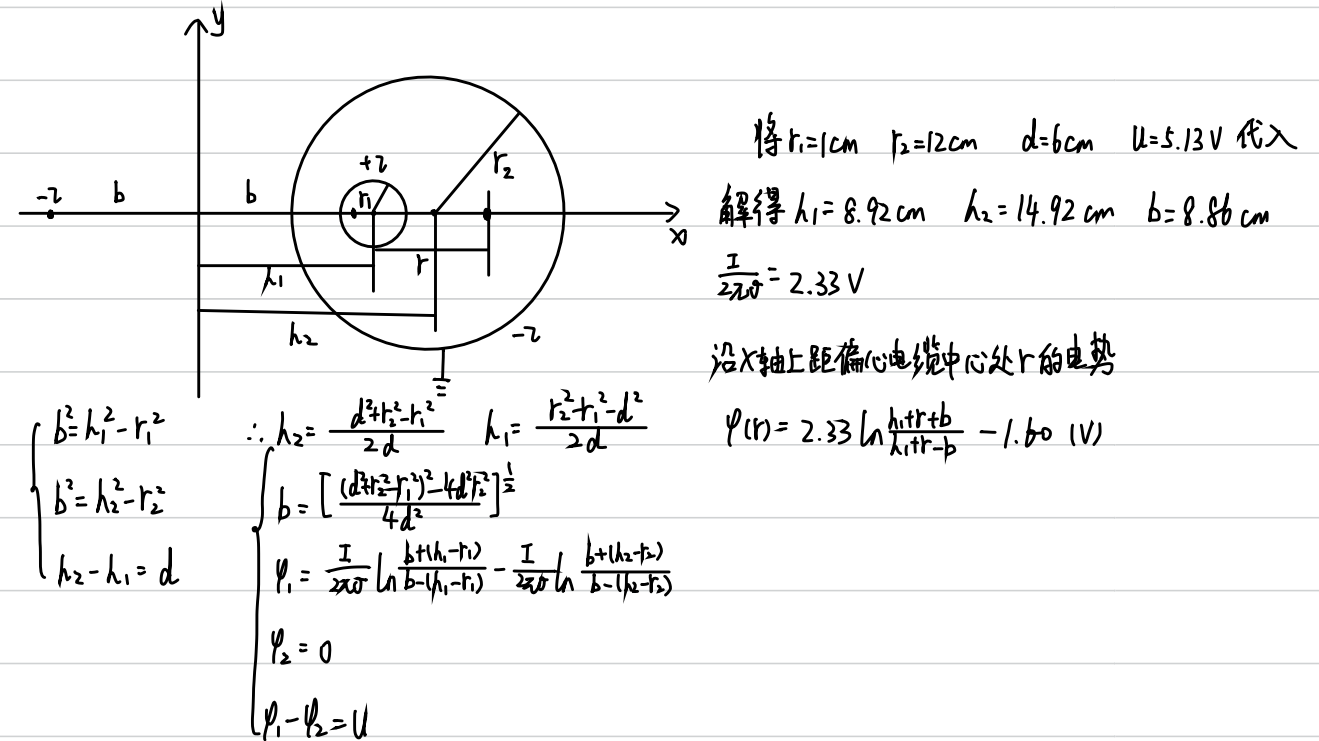 y
+τ
r₂
-τ
b
b
r₁
x
r
h₁
h₂
-τ
{ b²=h₁²-r₁²
b²=h₂²-r₂²
h₂-h₁=d
∴ h₂= (d²+r₂²-r₁²)/(2d) h₁= (r₂²-r₁²-d²)/(2d)
{ b=[((d²+r₂²-r₁²)²-4d²r₂²)/(4d²)]^(1/2)
φ₁= I/(2πσ) ln (b+(h₁-r₁))/(b-(h₁-r₁)) - I/(2πσ) ln (b+(h₂-r₂))/(b-(h₂-r₂))
φ₂=0
φ₁-φ₂=U
将 r₁=1cm r₂=12cm d=6cm U=5.13V 代入
解得 h₁=8.92cm h₂=14.92cm b=8.86cm
I/(2πσ) = 2.33V
沿X轴上距偏心电缆中心处r的电势
φ(r)=2.33 ln (h₁+r+b)/(h₁+r-b) -1.60 (V)